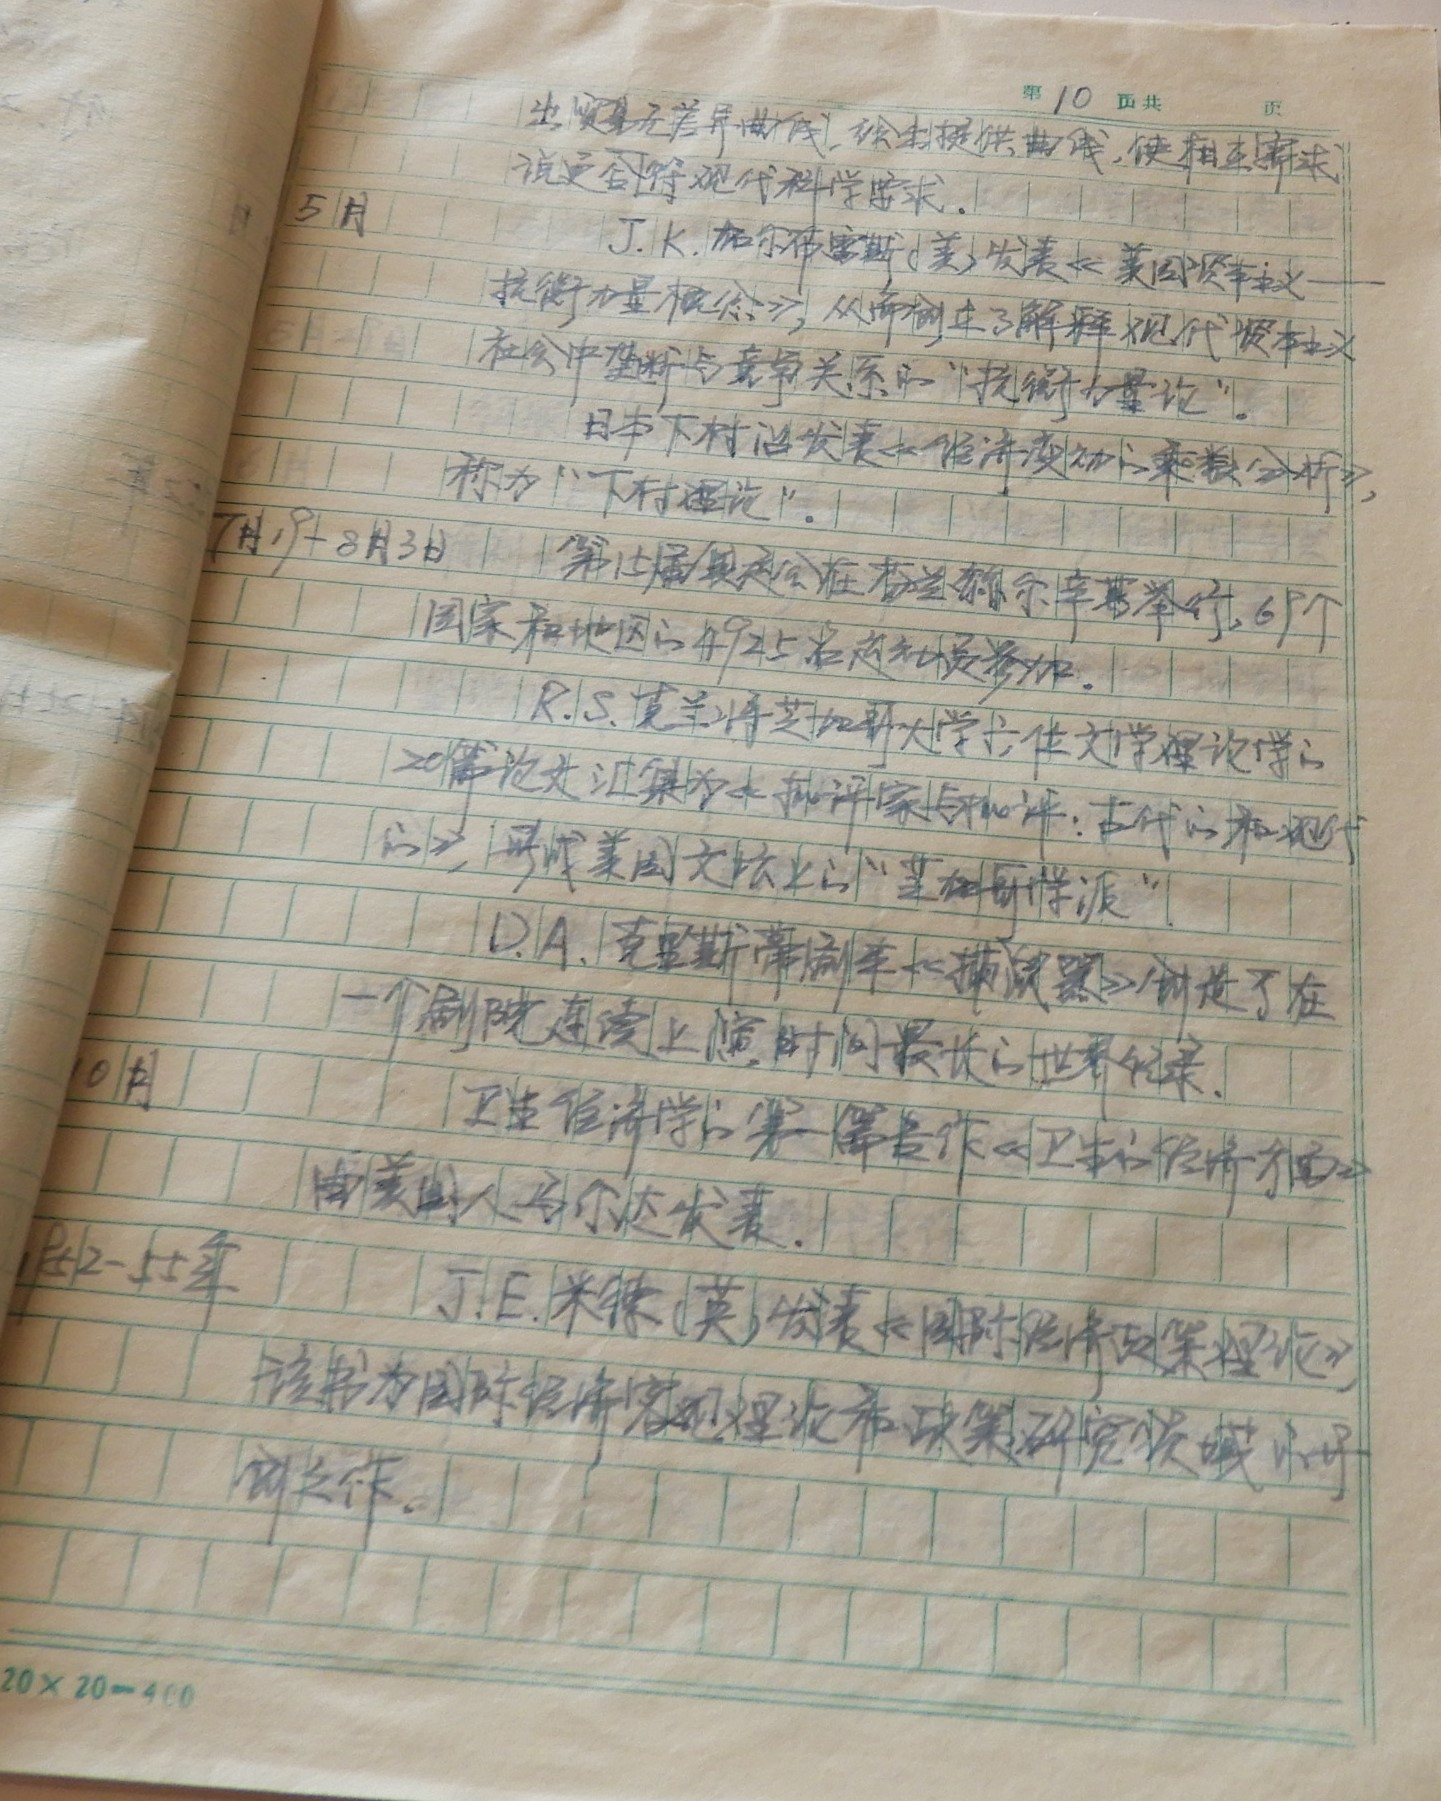 第10页共 页
出贸易无差异曲线,绘制提供曲线,使相互需求
说更合符现代科学要求.
5月
J.K.加尔布雷斯(美)发表《美国资本主义——
抗衡力量概念》,从而创立了解释现代资本主义
社会中垄断与竞争关系的“抗衡力量论”.
日本下村治发表《经济变动的乘数分析》,
称为“下村理论”.
7月19-8月3日 第15届奥运会在芬兰赫尔辛基举行,69个
国家和地区的4925名运动员参加.
R.S.克兰将芝加哥大学六位文学理论学的
20篇论文汇集为《批评家与批评:古代的和现代
的》,形成美国文坛上的“芝加哥学派”.
D.A.克里斯蒂剧本《捕鼠器》创造了在
一个剧院连续上演时间最长的世界纪录.
10月
卫生经济学的第一篇合作《卫生的经济方面》
由美国人马尔达发表.
1952-55年 J.E.米德(英)发表《国际经济政策理论》,
该书为国际经济客观理论和政策研究领域的开
创之作.
20×20=400